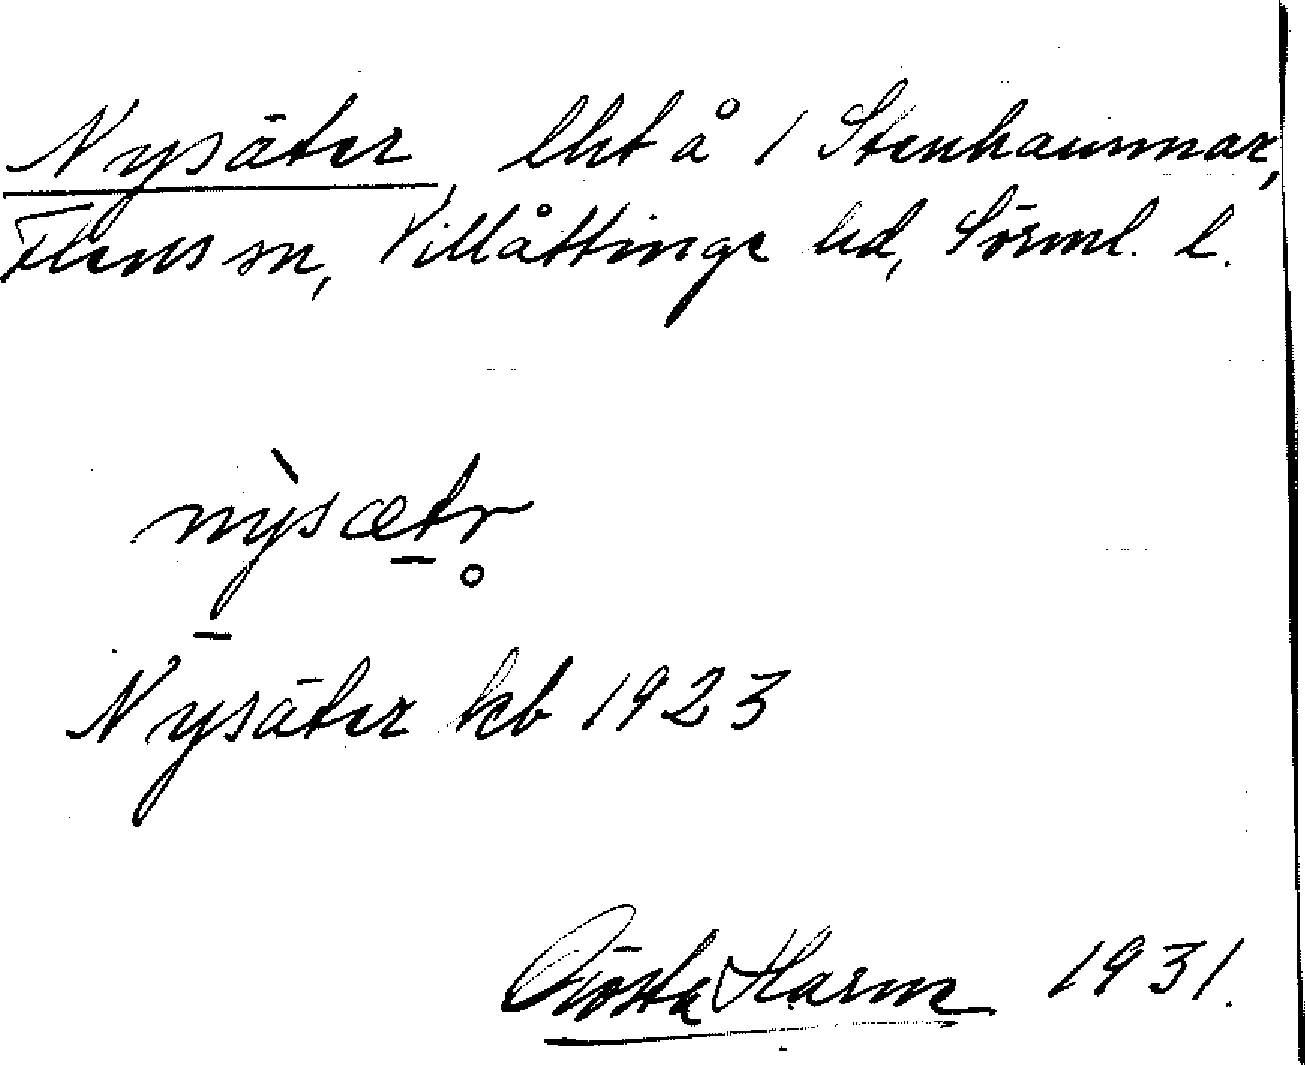 Nysäter lht å 1 Stenhammar,
Flens sn, Villåttinge hd, Sörml. l.
nỳsætr̥
Nysäter kb 1923
Gösta Harm 1931.